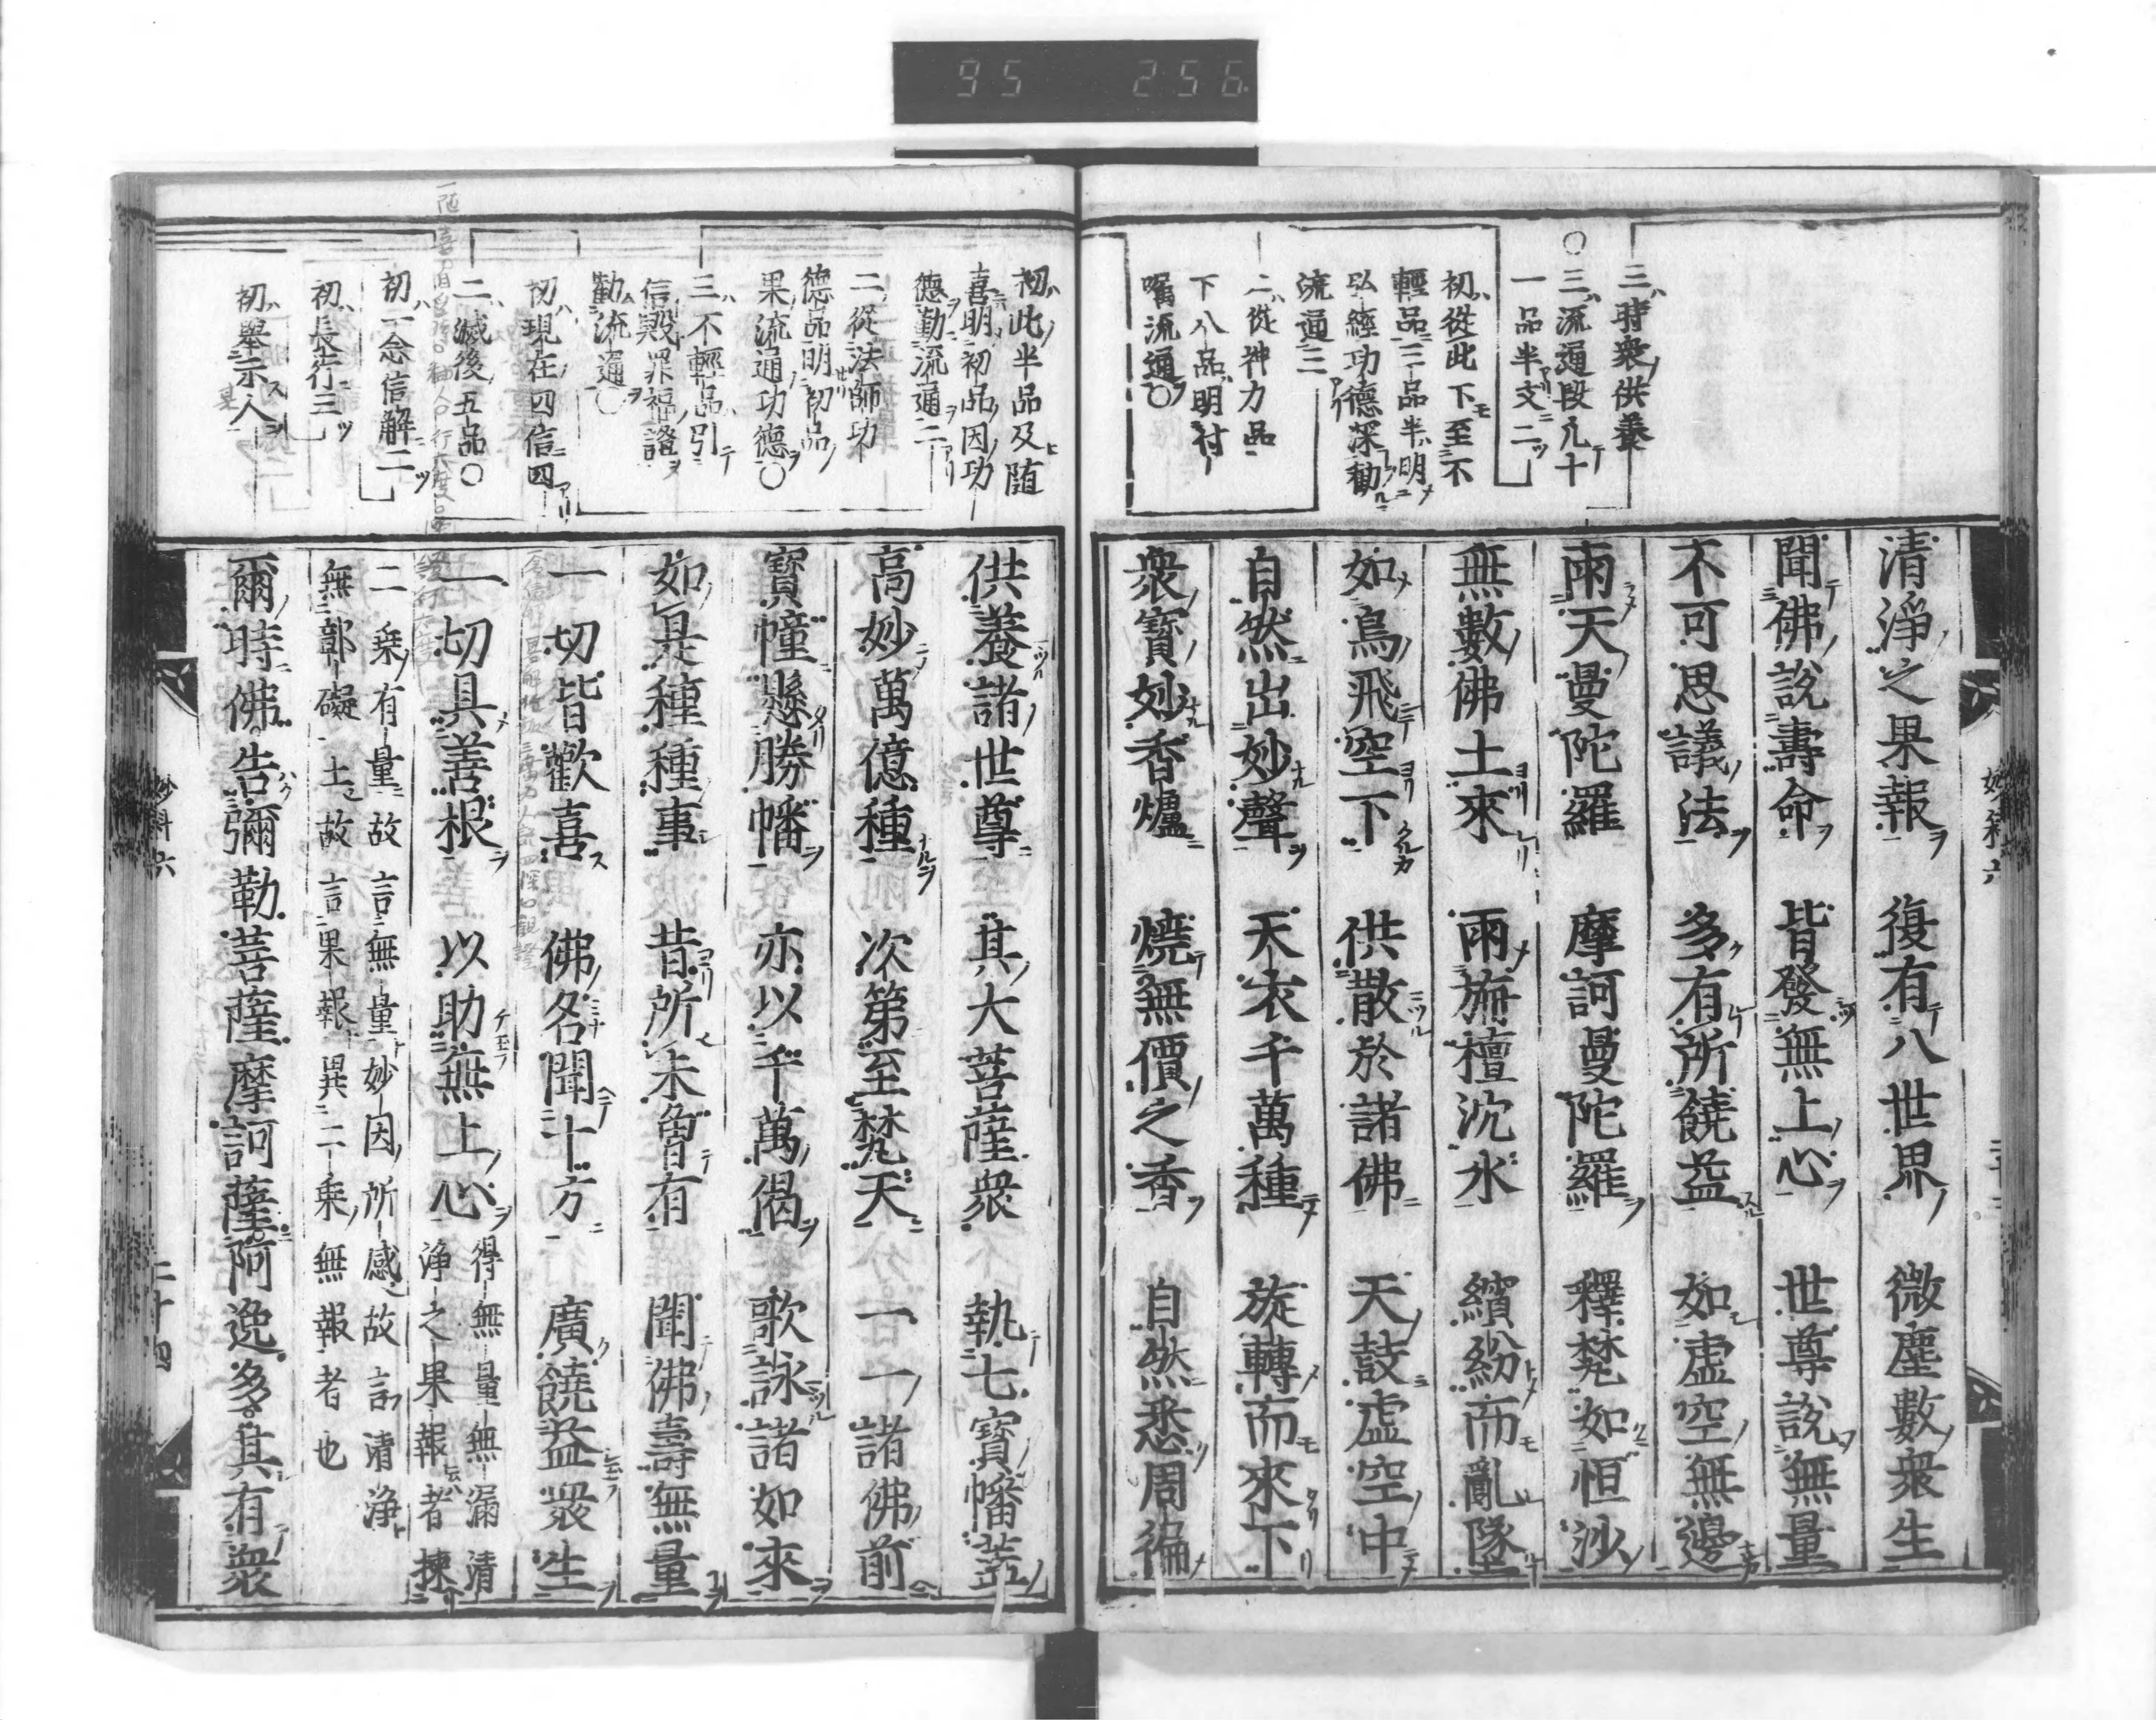 95 256
三時衆供養
○三流通段凡十
一品半文二
初從此下至不
輕品三品半明
弘經功德深勸
流通三
二從神力品
下八品明付
囑流通○
清淨之果報 復有八世界 微塵數衆生
聞佛說壽命 皆發無上心 世尊說無量
不可思議法 多有所饒益 如虛空無邊
雨天曼陀羅 摩訶曼陀羅 釋梵如恒沙
無數佛土來 雨旃檀沈水 繽紛而亂墜
如鳥飛空下 供散於諸佛 天鼓虛空中
自然出妙聲 天衣千萬種 旋轉而來下
衆寶妙香爐 燒無價之香 自然悉周徧
初此半品及随
喜明初品因功
德勸流通二
二從法師功
德品明初品
果流通功德○
三不輕品引
信毀罪福證
勸流通○
初現在四信四
二滅後五品○
初一念信解二
初長行三
初舉示人
供養諸世尊 其大菩薩衆 執七寶幡蓋
高妙萬億種 次第至梵天 一一諸佛前
寶幢懸勝幡 亦以千萬偈 歌詠諸如來
如是種種事 昔所未曾有 聞佛壽無量
一切皆歡喜 佛名聞十方 廣饒益衆生
一切具善根 以助無上心
得無量無漏清
淨之果報者揀
二乘有量故言無量妙因所感故言清淨
無鄣礙土故言果報異二乘無報者也
爾時佛告彌勒菩薩摩訶薩阿逸多其有衆
妙科六
二十四